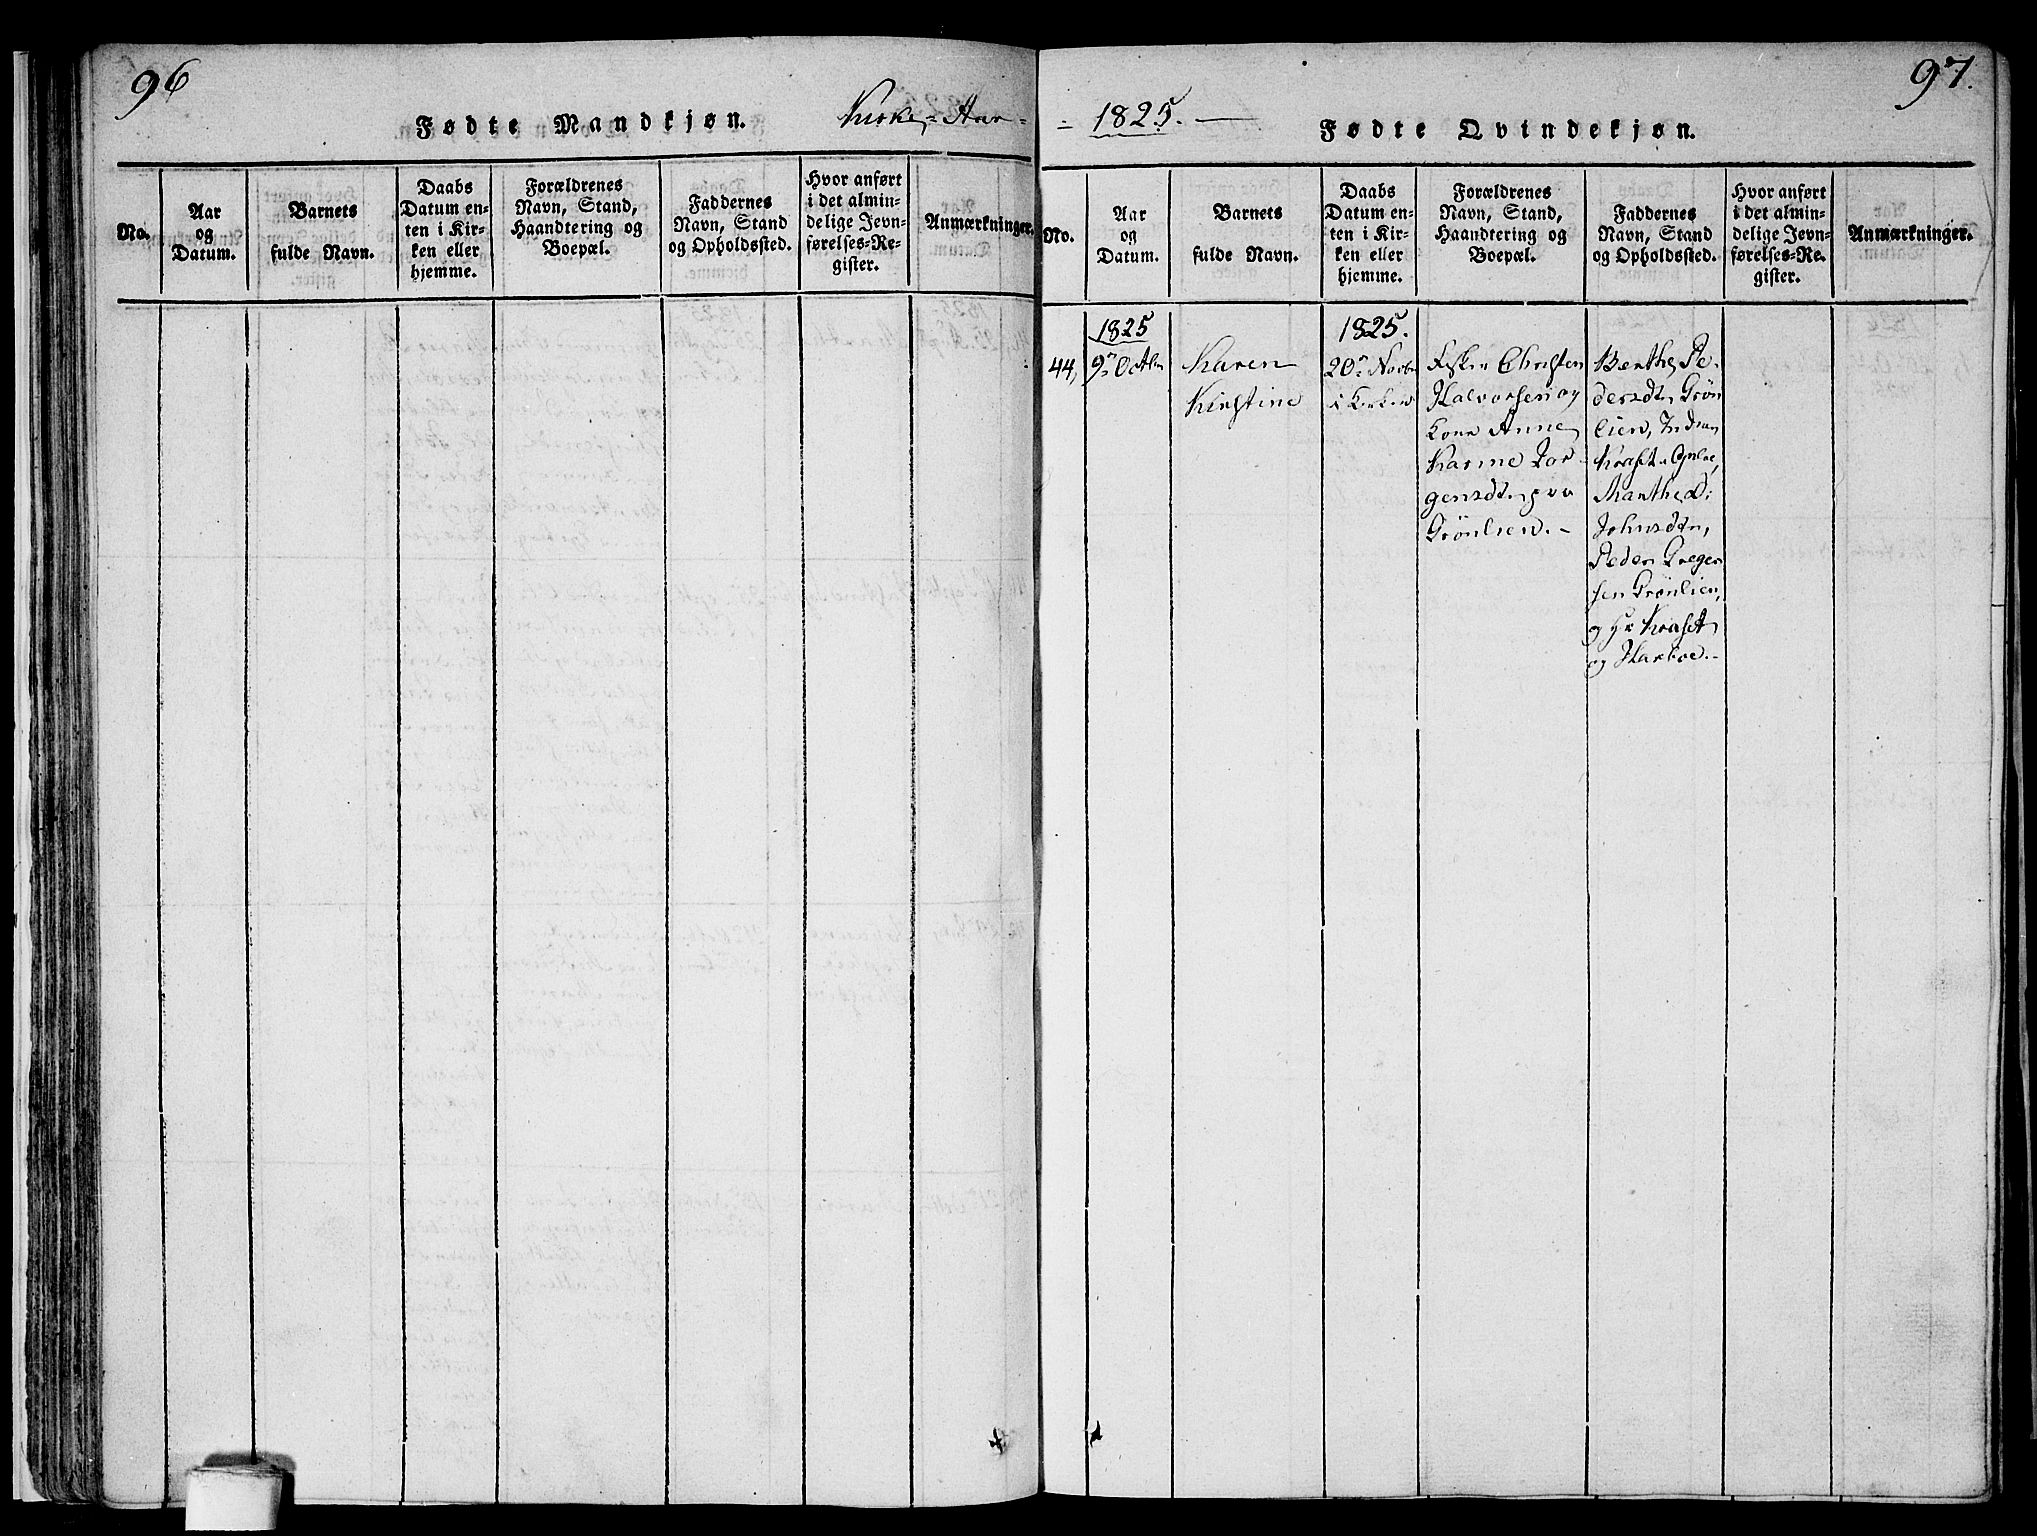 96
Fødte Mandkjøn.
Kirke-Aar-
No.
Aar
og
Datum.
Barnets
fulde Navn.
Daabs
Datum en-
ten i Kir-
ken eller
hjemme.
Forældrenes
Navn, Stand,
Haandtering og
Boepæl.
Faddernes
Navn, Stand
og Opholdssted.
Hvor anført
i det almin-
delige Jevn-
førelses-Re-
gister.
Anmærkninger.
- 1825. -
97.
Fødte Qvindekjøn.
No.
Aar
og
Datum.
Barnets
fulde Navn.
Daabs
Datum en-
ten i Kir-
ken eller
hjemme.
Forældrenes
Navn, Stand,
Haandtering og
Boepæl.
Faddernes
Navn, Stand
og Opholdssted.
Hvor anført
i det almin-
delige Jevn-
førelses-Re-
gister.
Anmærkninger.
44,
1825
9de Octbr
Karen
Kirstine
1825.
20de Novbr
i Kirken
Christen
Halvorsen og
Kone Anne
Karine Jor-
gensdtr
Grönlien.-
Berthe Pe-
dersdtr Grön
lien,
Marthe
Johnsdtr,
Peder Greger
sen Grönlien,
og
og